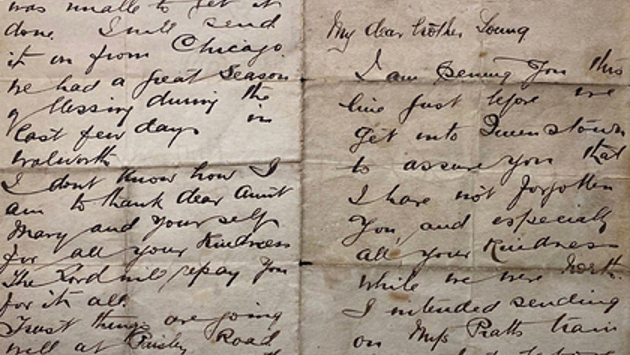 was unable to get it
done I will send
it on from Chicago.
we had a great season
of blessing during the
last few days in
Walworth
I dont know how I
am to thank dear Aunt
Mary and yourself
for all your kindness
The Lord will repay you
for it all.
Trust things are going
well at Paisley Road
My dear brother Young
I am penning you this
line just before we
get into Queenstown
to assure you that
I have not forgotten
you, and especially
all your kindness
while we were North.
I intended sending
on Mrs Pratts train